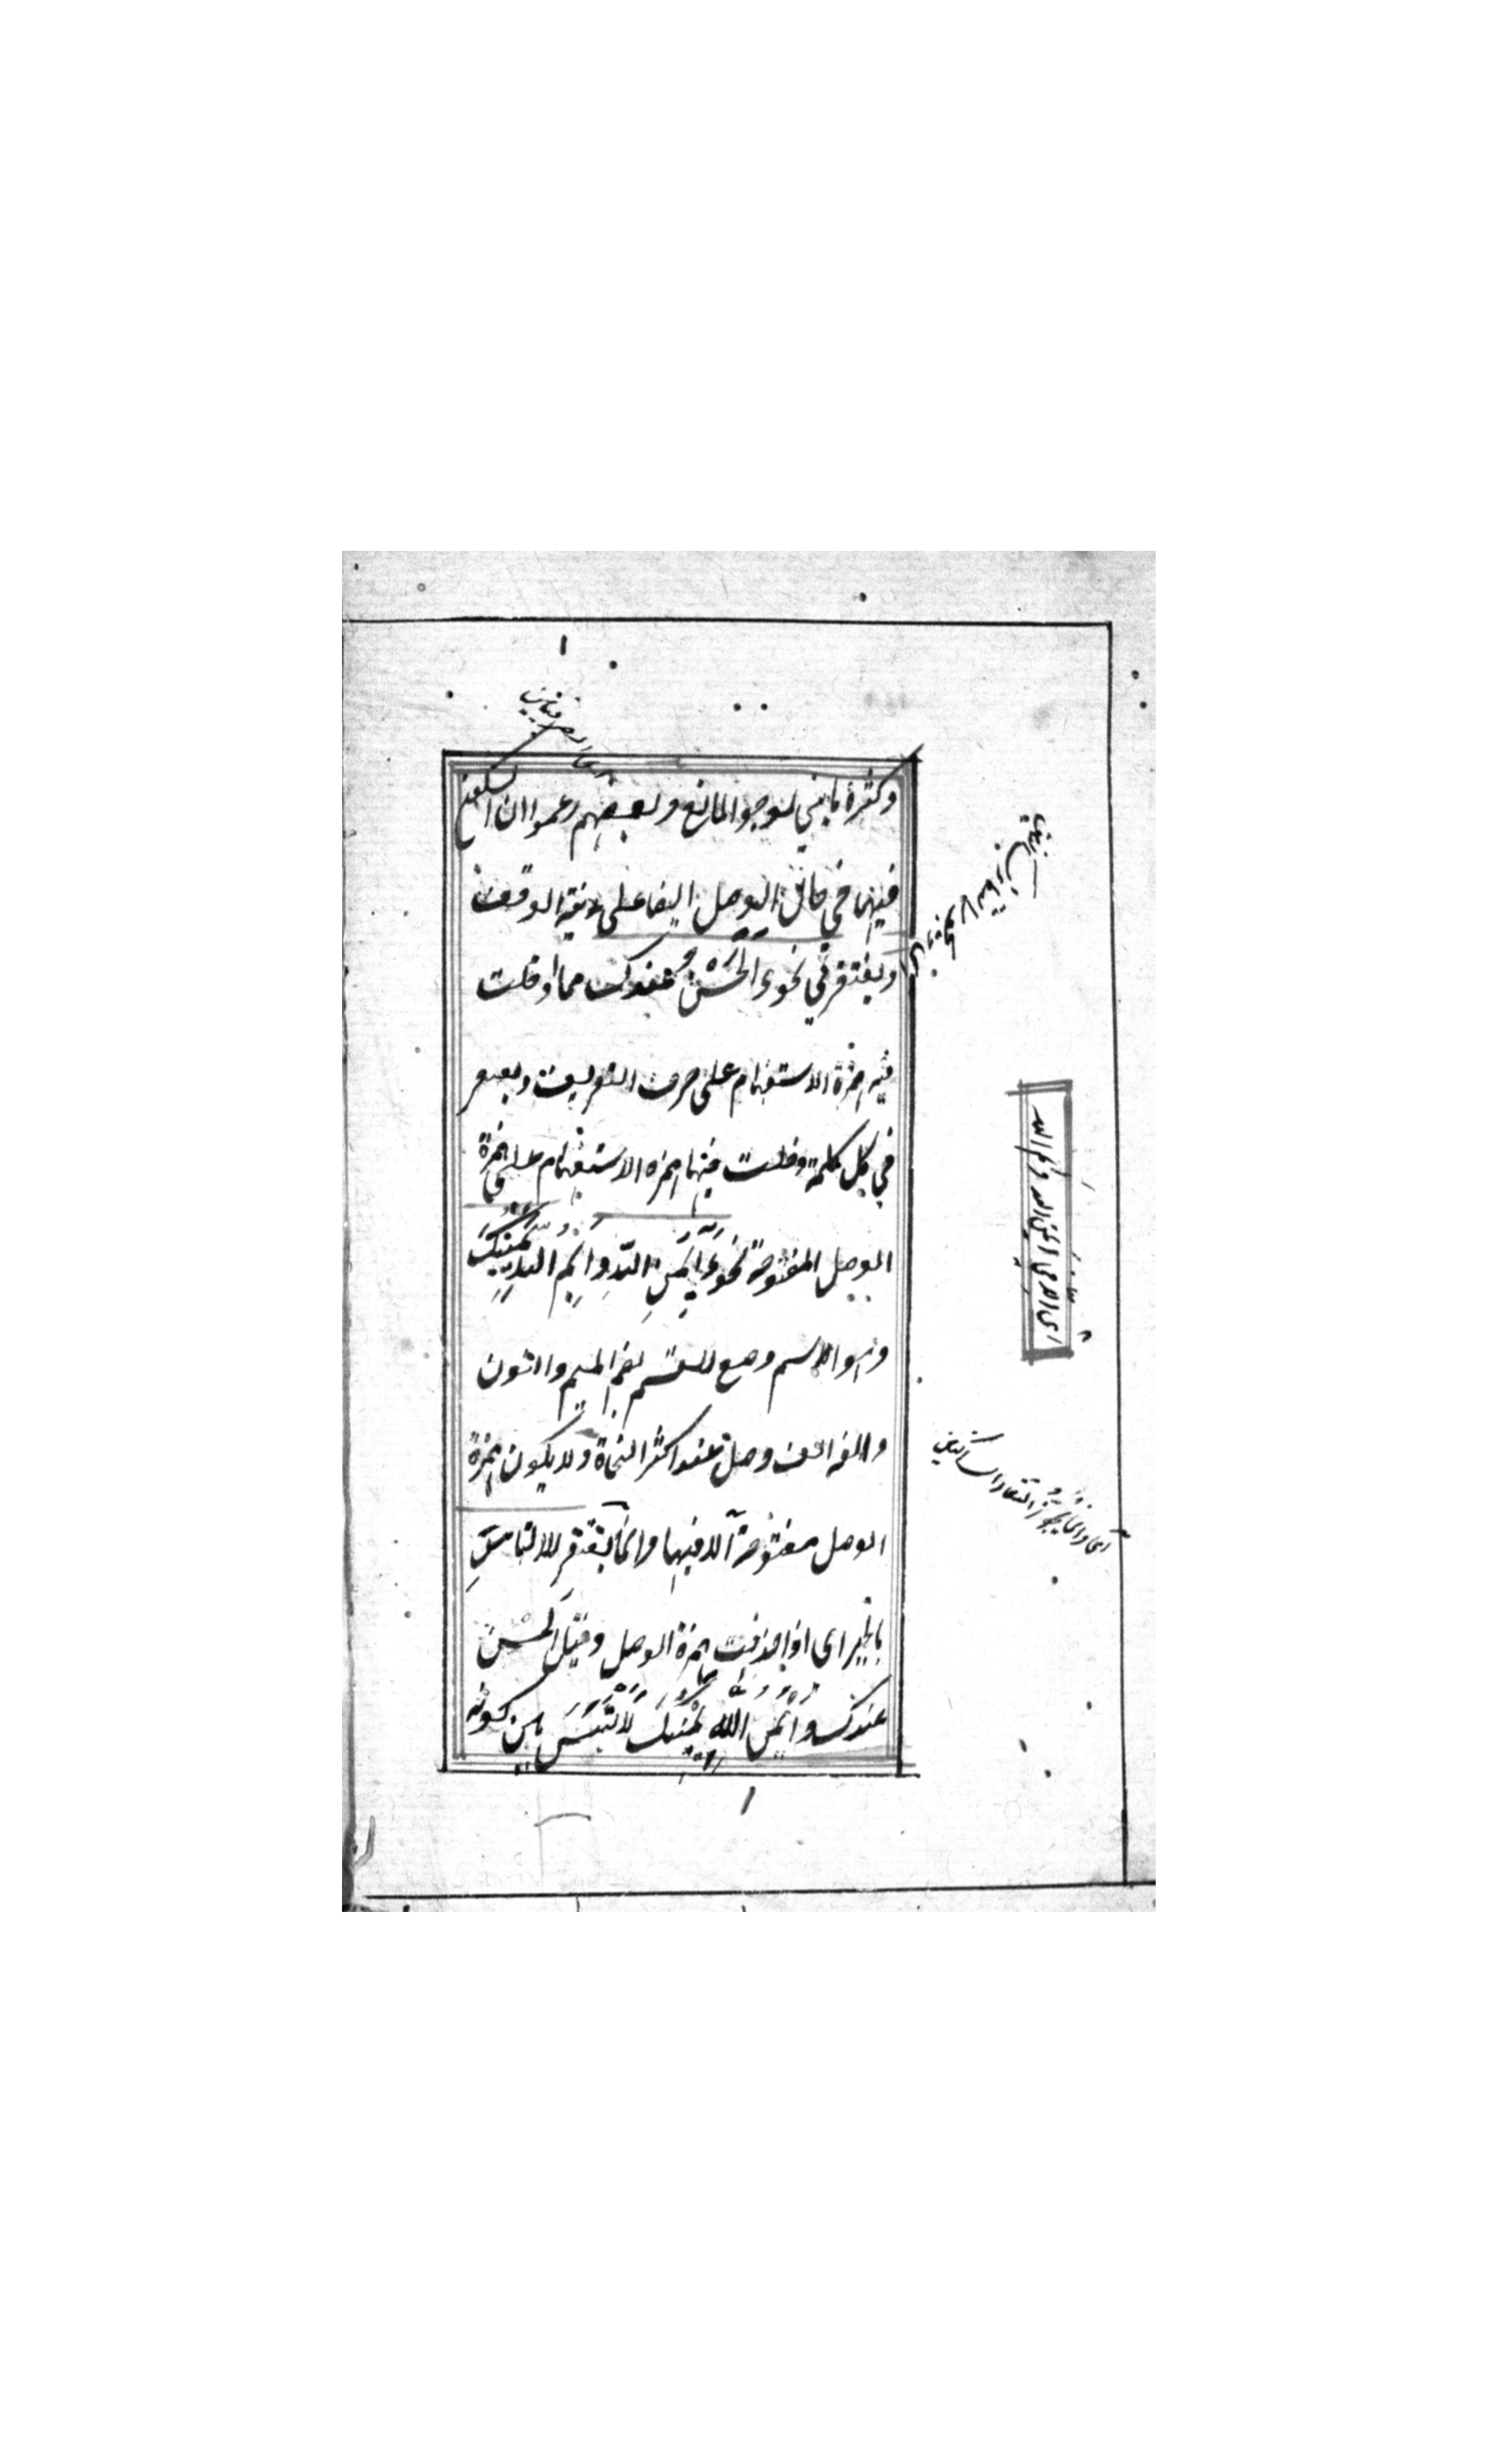 وكثرة ما بني لوجود المانع وبعضهم زعموا ان السكون
فيهما في حال الوصل ايضا على نية الوقف
ويغتفر في نحو ءالحسن عندك مما دخلت
فيه همزة الاستفهام على حرف التعريف
في كل كلمة دخلت فيها همزه الاستفهام على همزة
الوصل المفتوحة نحو ءايمن الله وايم الله يمينك
وهو الاسم وضع للقسم بضم الميم والنون
والفه الف وصل عند اكثر النحاة ولا يكون همزة
الوصل مفتوحة الا فيها وانما يغتفر للالتباس
بالخبر اي اذا حذفت همزة الوصل وقيل الحسن
عندك وايمن الله يمينك لالتبس بين كونه
اي وانما يجوز التقاء الساكنين